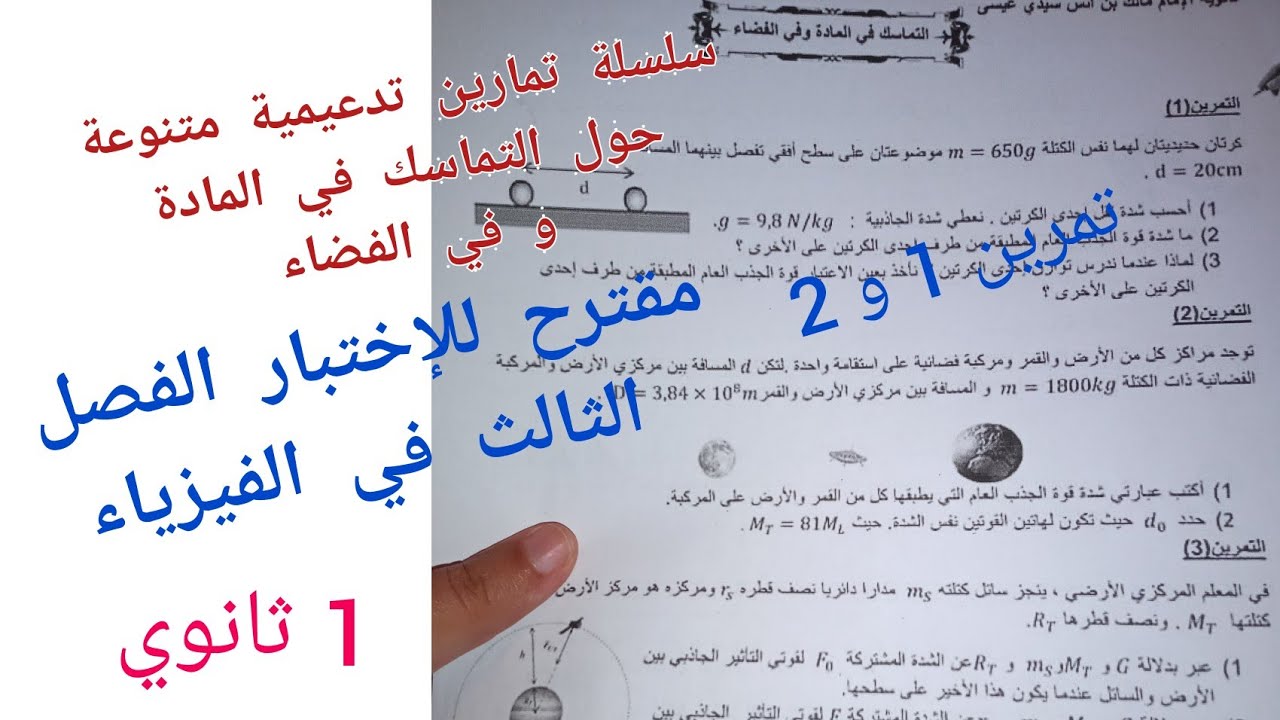 سلسلة تمارين تدعيمية متنوعة
حول التماسك في المادة
و في الفضاء
مقترح للإختبار الفصل
الثالث في الفيزياء
1 ثانوي
تمرين 1 و 2
التماسك في المادة وفي الفضاء
مالك بن أنس سيدي عيسى
التمرين(1)
كرتان حديديتان لهما نفس الكتلة m = 650g موضوعتان على سطح أفقي تفصل بينهما
d = 20cm .
d
1) أحسب شدة إحدى الكرتين . نعطي شدة الجاذبية : g = 9,8 N/kg.
2) ما شدة قوة الجذب العام المطبقة من طرف إحدى الكرتين على الأخرى ؟
3) لماذا عندما ندرس توازن إحدى الكرتين نأخذ بعين الاعتبار قوة الجذب العام المطبقة من طرف إحدى
الكرتين على الأخرى ؟
التمرين(2)
توجد مراكز كل من الأرض والقمر ومركبة فضائية على استقامة واحدة .لتكن d المسافة بين مركزي الأرض والمركبة
الفضائية ذات الكتلة m = 1800kg و المسافة بين مركزي الأرض والقمر D = 3,84 × 10⁸m
1) أكتب عبارتي شدة قوة الجذب العام التي يطبقها كل من القمر والأرض على المركبة.
2) حدد d₀ حيث تكون لهاتين القوتين نفس الشدة. حيث M_T = 81M_L .
التمرين(3)
في المعلم المركزي الأرضي ، ينجز ساتل كتلته m_S مدارا دائريا نصف قطره r_s ومركزه هو مركز الأرض
كتلتها M_T . ونصف قطرها R_T.
h
1) عبر بدلالة G و M_T و m_S و R_T عن الشدة المشتركة F₀ لقوتي التأثير الجاذبي بين
الأرض والساتل عندما يكون هذا الأخير على سطحها.
عن الشدة المشتركة F لقوتي التأثير الجاذبي بين